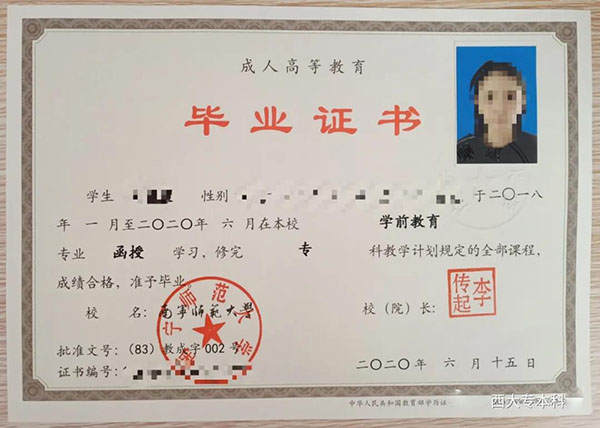 成人高等教育
毕业证书
学生 性别 于二〇一八
年 一 月至二〇二〇年 六 月在本校 学前教育
专业 函授 学习，修完 专 科教学计划规定的全部课程，
成绩合格，准予毕业。
校 名：南宁师范大学 校（院）长： 李传起
南宁师范大学
批准文号：（83）教成字 002 号
证书编号： 二〇二〇年 六 月 十五 日
中华人民共和国教育部学历证
西大专本科